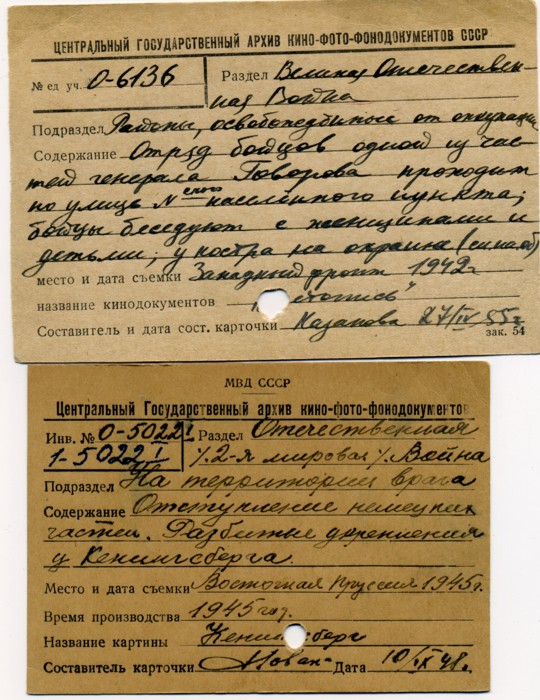 ЦЕНТРАЛЬНЫЙ ГОСУДАРСТВЕННЫЙ АРХИВ КИНО-ФОТО-ФОНОДОКУМЕНТОВ СССР
№ ед уч. О-6136 Раздел Великая Отечествен-
ная Война
Подраздел Районы, освобожденные от оккупации
Содержание Отряд бойцов одной из час-
тей генерала Говорова проходит
по улице N ского населённого пункта;
бойцы беседуют с женщинами и
детьми; у костра на окраине
место и дата съемки Западный фронт 1942г
название кинодокументов топись"
Составитель и дата сост. карточки Казакова 27/IV 55г
зак. 54
МВД СССР
Центральный Государственный архив кино-фото-фонодокументов
Инв. № О-5022 I Раздел Отечественная
1-5022 I /2-я мировая/. Война
Подраздел На территории врага
Содержание Отступление немецких
частей. Разбитые укрепления
у Кенигсберга.
Место и дата съемки Восточная Пруссия 1945г.
Время производства 1945 год.
Название картины Кенигсберг
Составитель карточки Дата 10/IX 48г.